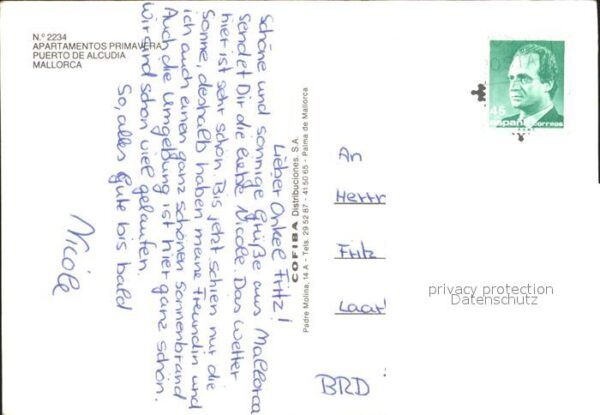 N.º 2234
APARTAMENTOS PRIMAVERA
PUERTO DE ALCUDIA
MALLORCA
Lieber Onkel Fritz!
Schöne und sonnige Grüße aus Mallorca
sendet Dir die liebe Nicole. Das Wetter
hier ist sehr schön. Bis jetzt schien nur die
Sonne, deshalb haben meine Freundin und
ich auch einen ganz schönen Sonnenbrand
Auch die Umgebung ist hier ganz schön.
wir sind schon viel gelaufen.
So, alles Gute bis bald
Nicole
COFIBA Distribuciones, S.A.
Padre Molina, 14 A - Tels. 29 52 87 - 41 50 65 - Palma de Mallorca
45
españa correos
An
Herrn
Fritz
Laar
BRD
privacy protection
Datenschutz